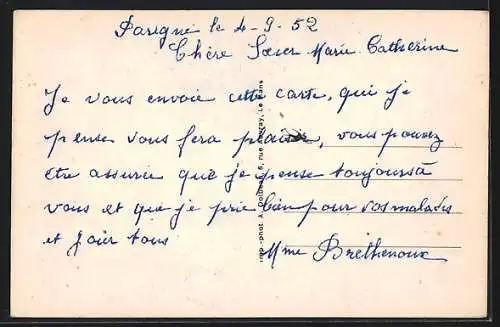 Parigné le 4-9-52
Chère Sœur Marie Catherine
Je vous envoie cette carte, qui je
pense vous fera plaisir, vous pouvez
être assurée que je pense toujours à
vous et que je prie bien pour vos malades
et pour tous
Mme Brethenoux
Imp.-phot. A. rue Le Mans